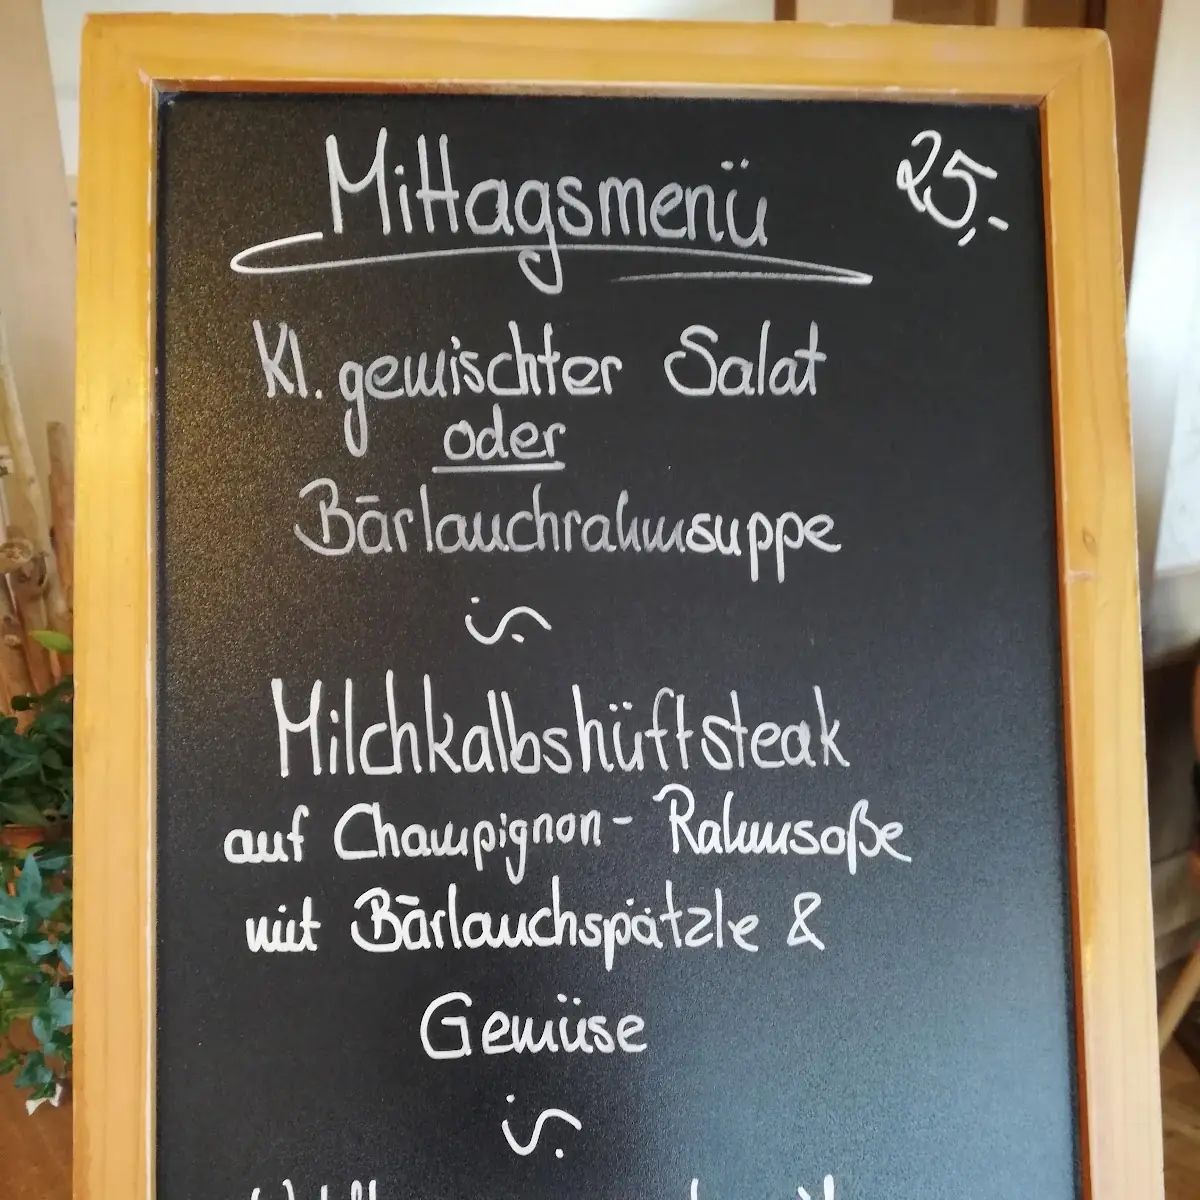 Mittagsmenü 25,-
Kl. gemischter Salat
oder
Bärlauchrahmsuppe
Milchkalbshüftsteak
auf Champignon- Rahmsoße
mit Bärlauchspätzle &
Gemüse